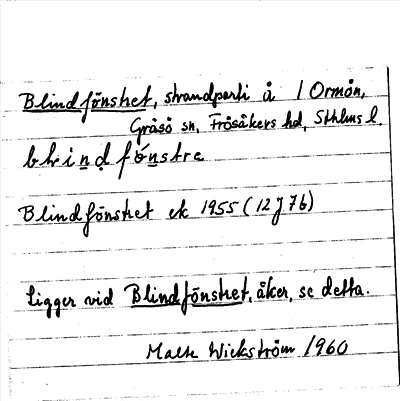 Blindfönstret, strandparti å 1 Ormön,
Gräsö sn, Frösåkers hd, Sthlms l.
blindfönstre
Blindfönstret ek 1955 (12J7b)
Ligger vid Blindfönstret, åker, se detta.
Wickström 1960